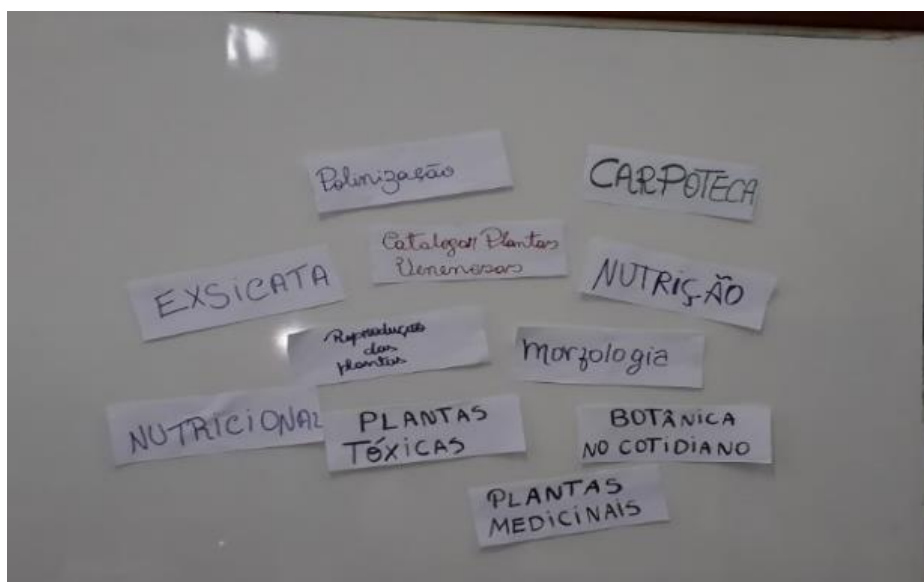 Polinização
CARPOTECA
Catalogar Plantas
Venenosas
EXSICATA
NUTRIÇÃO
Reprodução
das
plantas
Morfologia
NUTRICIONAL
PLANTAS
TÓXICAS
BOTÂNICA
NO COTIDIANO
PLANTAS
MEDICINAIS